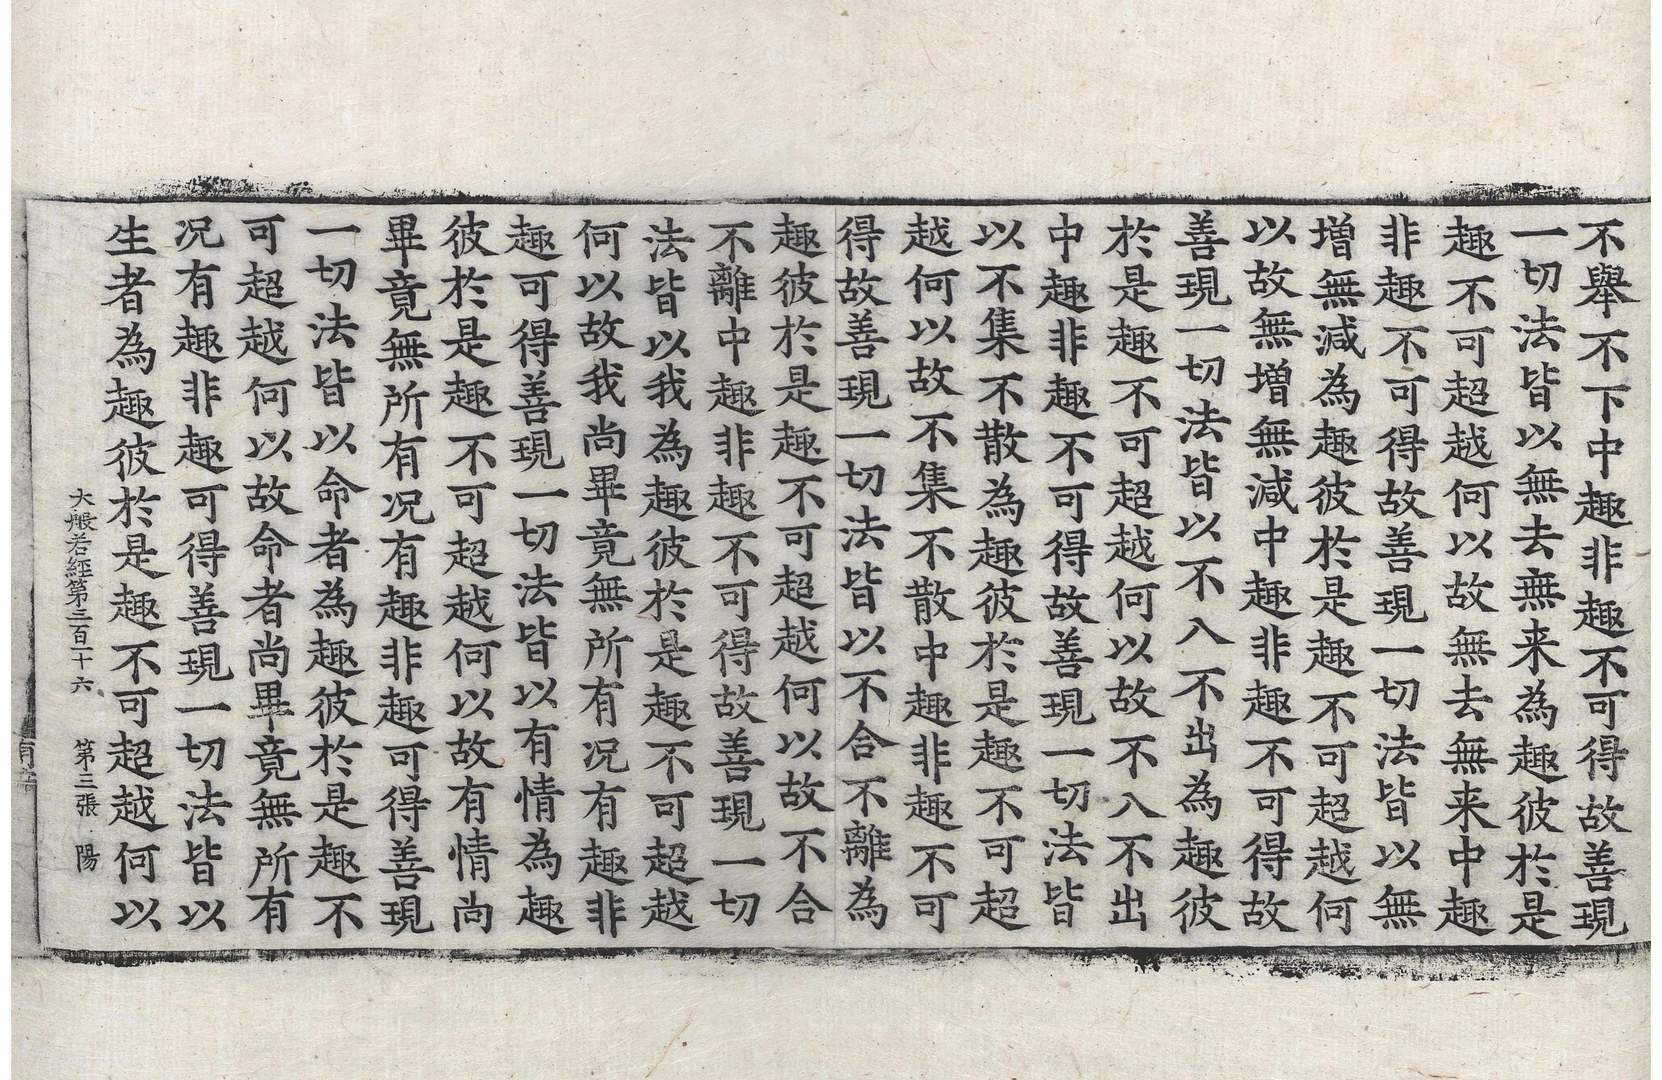 不舉不下中趣非趣不可得故善現
一切法皆以無去無来為趣彼於是
趣不可超越何以故無去無来中趣
非趣不可得故善現一切法皆以無
增無減為趣彼於是趣不可超越何
以故無增無減中趣非趣不可得故
善現一切法皆以不入不出為趣彼
於是趣不可超越何以故不入不出
中趣非趣不可得故善現一切法皆
以不集不散為趣彼於是趣不可超
越何以故不集不散中趣非趣不可
得故善現一切法皆以不合不離為
趣彼於是趣不可超越何以故不合
不離中趣非趣不可得故善現一切
法皆以我為趣彼於是趣不可超越
何以故我尚畢竟無所有况有趣非
趣可得善現一切法皆以有情為趣
彼於是趣不可超越何以故有情尚
畢竟無所有况有趣非趣可得善現
一切法皆以命者為趣彼於是趣不
可超越何以故命者尚畢竟無所有
况有趣非趣可得善現一切法皆以
生者為趣彼於是趣不可超越何以
大般若經第三百十六 第三張 陽